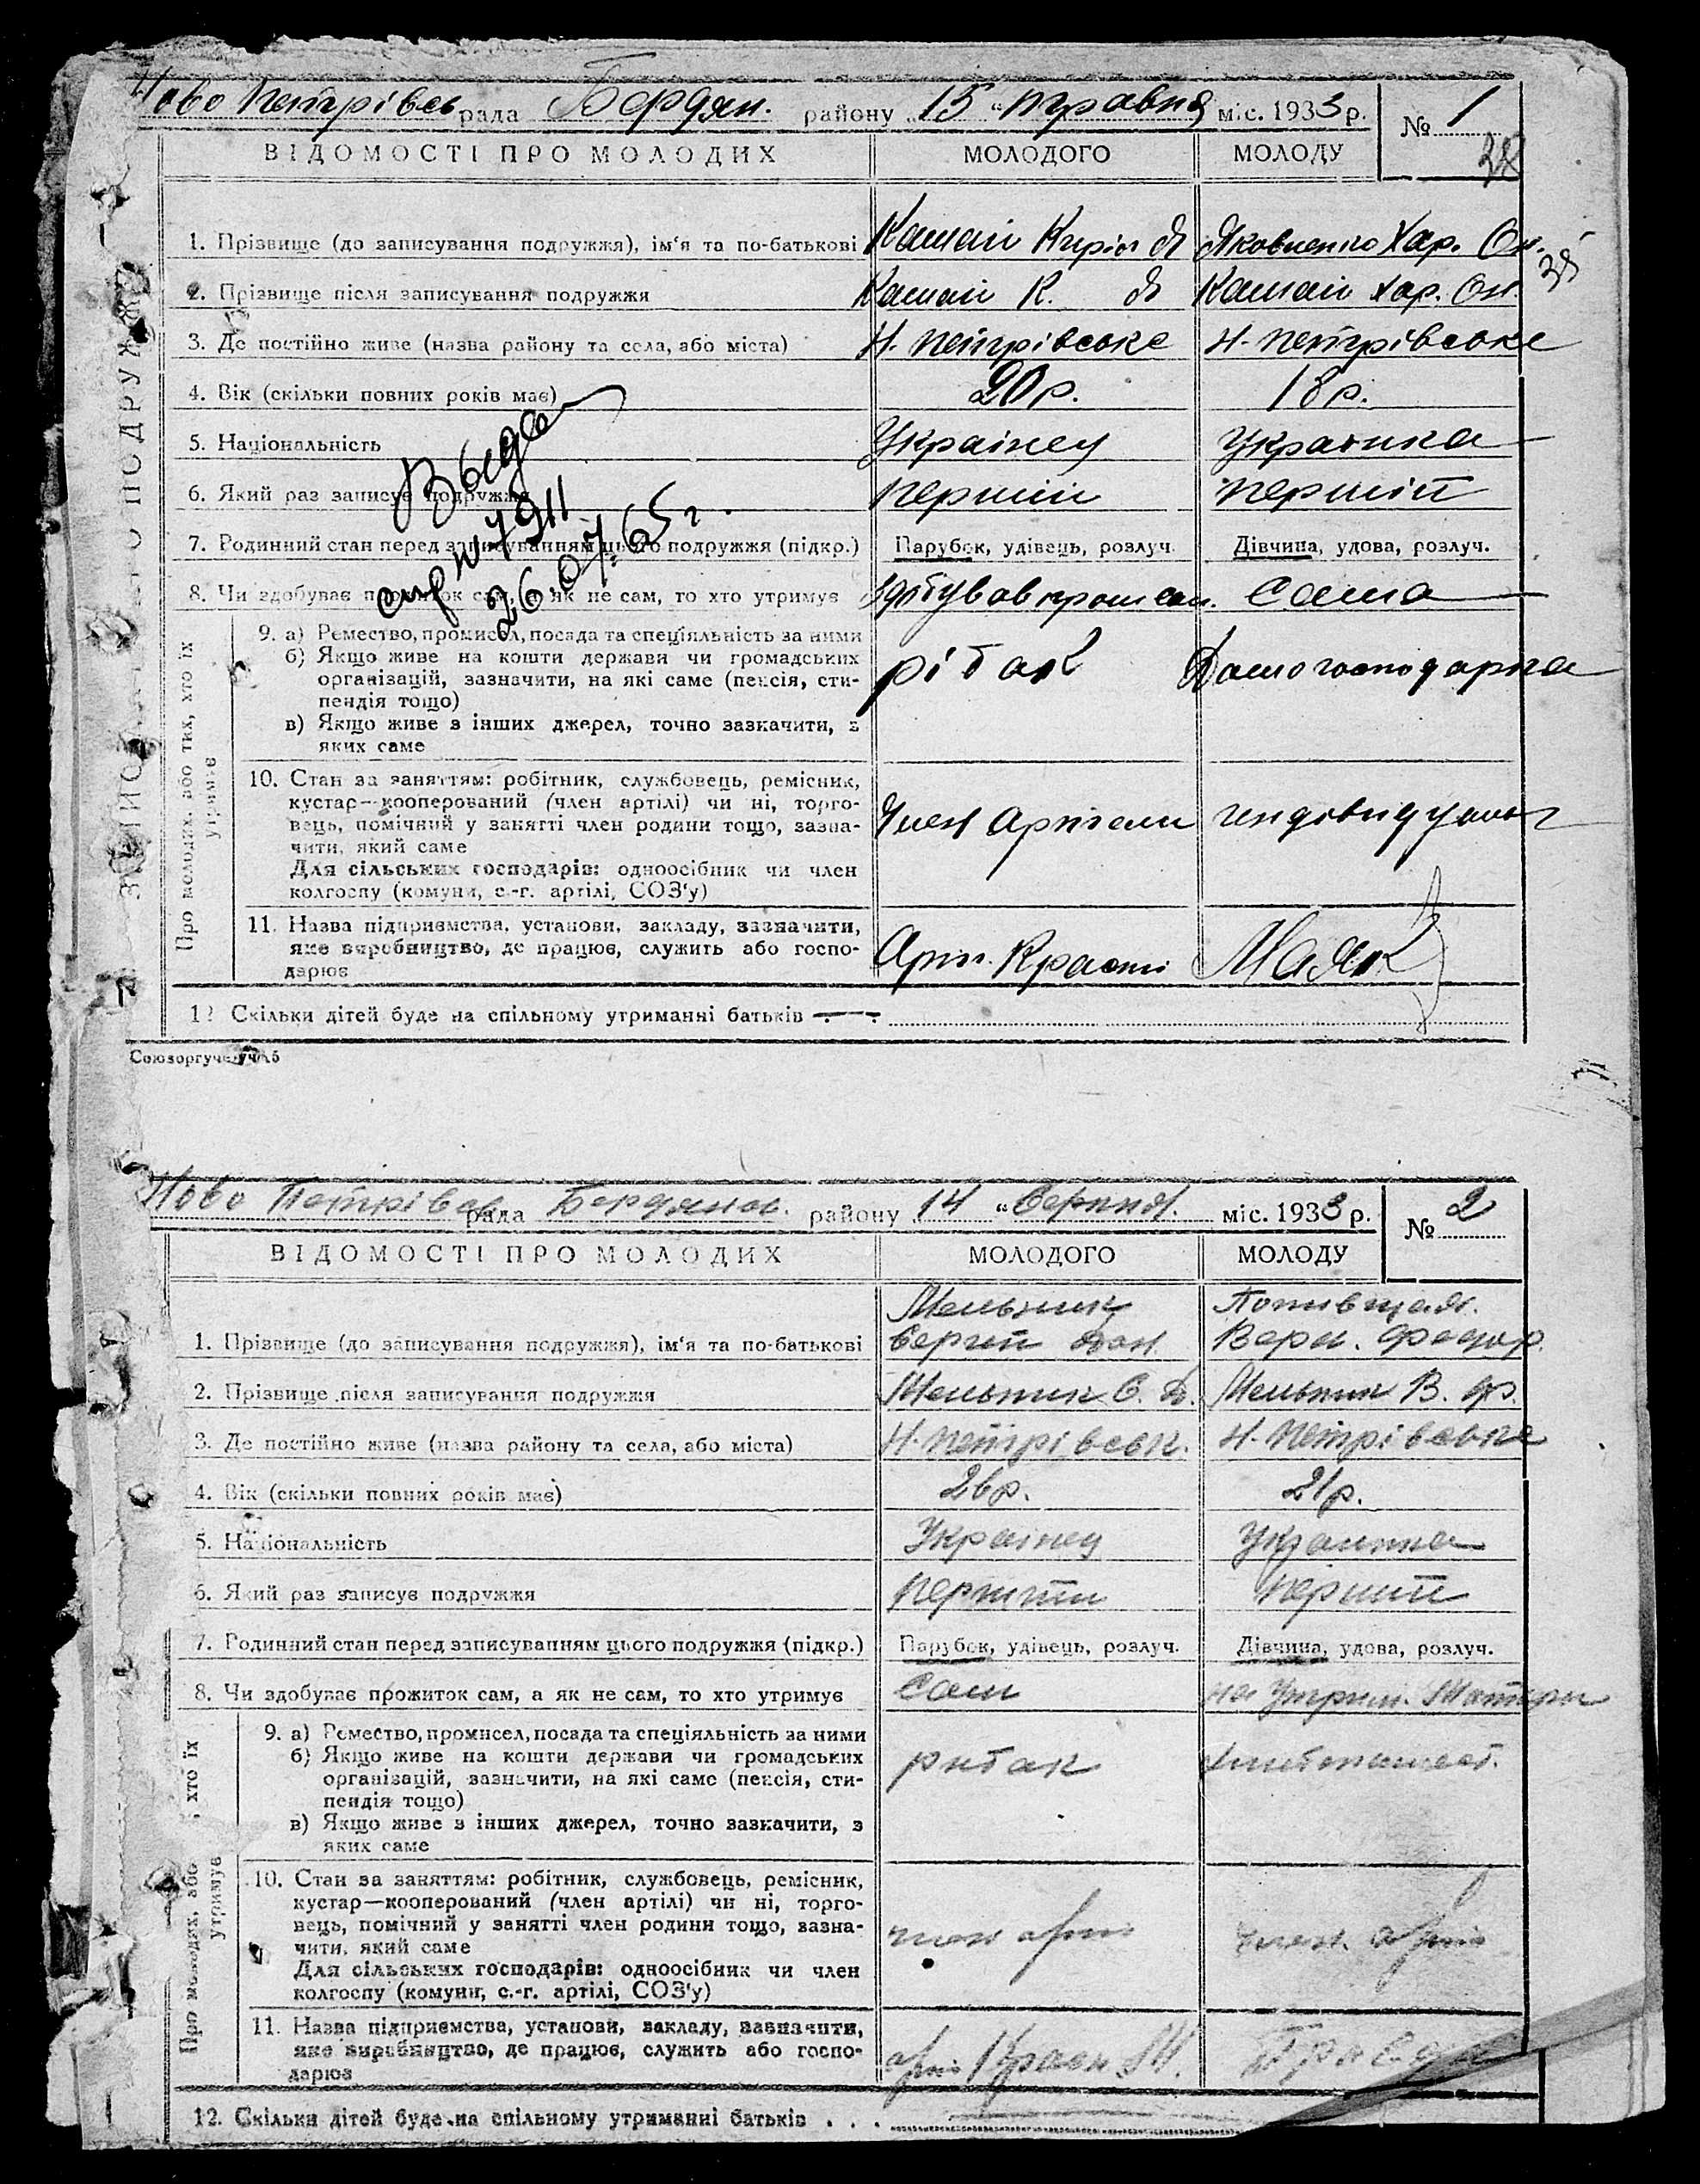 Ново Петрівсь рада Бердян. району 15 "травня міс. 1933 р.
№ 1
38
ВІДОМОСТІ ПРО МОЛОДИХ МОЛОДОГО МОЛОДУ
1. Прізвище (до записування подружжя), ім'я та по-батькові Яковленко Хар. Он.
35
2. Прізвище після записування подружжя К. Хар. Он.
3. Де постійно живе (назва району та села, або міста) Н. Петрівське Н. Петрівське
4. Вік (скільки повних років має) 20 р. 18 р.
5. Національність Українец Украінка
6. Який раз записує подружжя перший перший
Выдан
7911
26.07.65 г.
7. Родинний стан перед записуванням цього подружжя (підкр.) Парубок, удівець, розлуч. Дівчина, удова, розлуч.
8. Чи здобуває прожиток сам, а як не сам, то хто утримує Сама
ЗАПИС ПРО ПОДРУЖЖЯ
Про молодих, або тих, хто їх утримує
9. а) Ремество, промисел, посада та спеціяльність за ними
б) Якщо живе на кошти держави чи громадських рібак Домогосподарка
організацій, зазначити, на які саме (пенсія, сти-
пендія тощо)
в) Якщо живе з інших джерел, точно зазначити, з
яких саме
10. Стан за заняттям: робітник, службовець, ремісник,
кустар—кооперований (член артілі) чи ні, торго- Член Артели
вець, помічний у занятті член родини тощо, зазна-
чити, який саме
Для сільських господарів: одноосібник чи член
колгоспу (комуни, с.-г. артілі, СОЗ'у)
11. Назва підприємства, установи, закладу, зазначити,
яке виробництво, де працює, служить або госпо- Арт. Маяк
дарює
12 Скільки дітей буде на спільному утриманні батьків
Ново Петрівсь рада Бердянск. району 14 "Серпня. міс. 1933 р.
№ 2
ВІДОМОСТІ ПРО МОЛОДИХ МОЛОДОГО МОЛОДУ
Мельник
1. Прізвище (до записування подружжя), ім'я та по-батькові Сергій Дан. Вера. Федор.
2. Прізвище після записування подружжя Мельник С. Д. Мельник В. Ф.
3. Де постійно живе (назва району та села, або міста) Н. Петрівськ. Н. Петрівське
4. Вік (скільки повних років має) 26 р. 21 р.
5. Національність Українец Украинка
6. Який раз записує подружжя перший перший
7. Родинний стан перед записуванням цього подружжя (підкр.) Парубок, удівець, розлуч. Дівчина, удова, розлуч.
8. Чи здобуває прожиток сам, а як не сам, то хто утримує Сам на Утрим. Матери
Про молодих, або хто їх утримує
9. а) Ремество, промисел, посада та спеціяльність за ними
б) Якщо живе на кошти держави чи громадських рибак
організацій, зазначити, на які саме (пенсія, сти-
пендія тощо)
в) Якщо живе з інших джерел, точно зазначити, з
яких саме
10. Стан за заняттям: робітник, службовець, ремісник,
кустар—кооперований (член артілі) чи ні, торго-
вець, помічний у занятті член родини тощо, зазна- член арт член. арт
чити, який саме
Для сільських господарів: одноосібник чи член
колгоспу (комуни, с.-г. артілі, СОЗ'у)
11. Назва підприємства, установи, закладу, зазначити,
яке виробництво, де працює, служить або госпо- арт Красн. М.
дарює
12. Скільки дітей буде на спільному утриманні батьків . . .